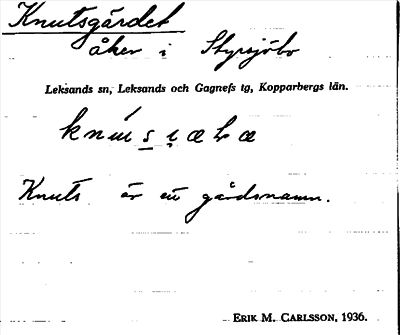 Knutsgärdet
åker i Styrsjöbo
Leksands sn, Leksands och Gagnefs tg, Kopparbergs län.
Knuts är ett gårdsnamn.
ERIK M. CARLSSON, 1936.